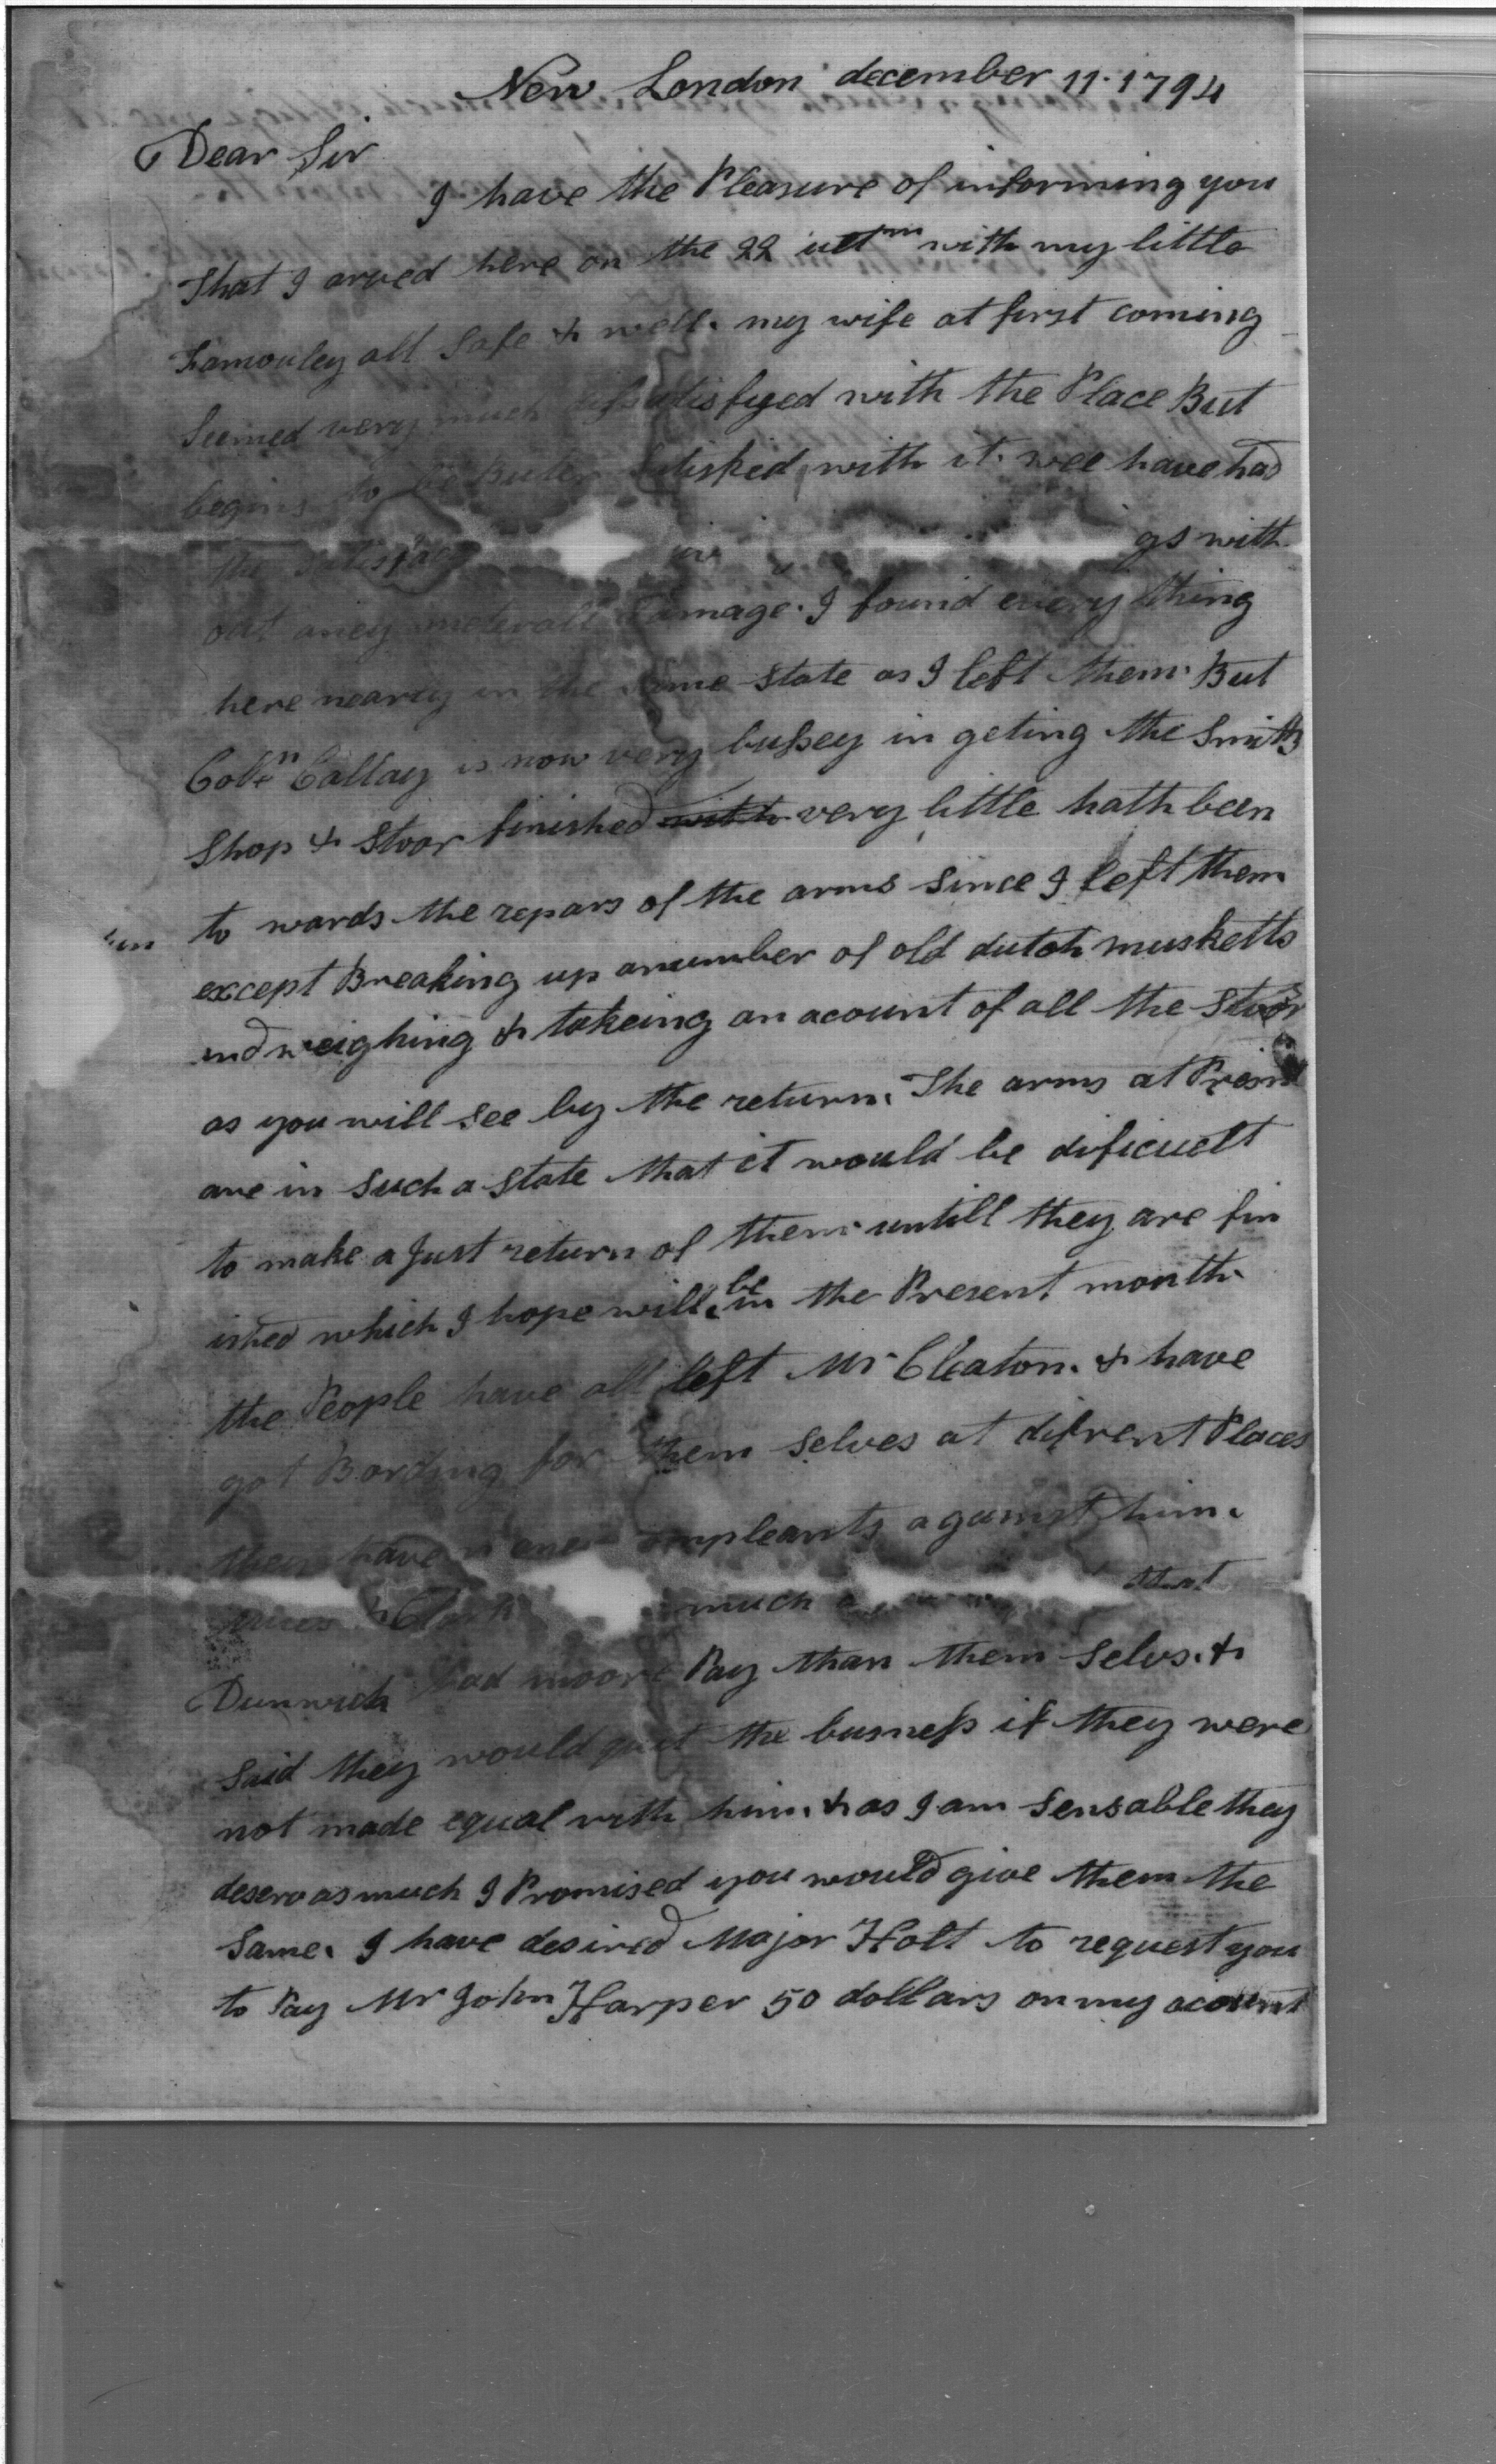 New London december 11. 1794
Dear Sir
I have the Pleasure of informing you
That I arved here on the 22 ultm with my little
famouley all safe & well. my wife at first coming
Seemed very much dissatisfyed with the Place But
begins to be Better satisfied with it. wee have had
the gs with
out aney damage. I found every thing
here nearly in the same state as I left them. But
Coln Callay is now very bussey in geting the Smiths
Shop & Stoor finished with very little hath been
to wards the repars of the arms since I left them
except Breaking up anumber of old dutch musketts
and weighing & takeing an acount of all the Stoor
as you will see by the return. The arms at Presint
are in such a state that it would be dificuelt
to make a Just return of them untill they are fin
ished which I hope will be in the Present month
the People have all left Mr Cleaton. & have
got Bording for them selves at difrent Places
they have compleants against him.
much that
Dunwich had moore Pay than them selvs. &
said they would quit the busness if they were
not made equal with him. & as I am sensable they
deserv as much I Promised you would give them the
same. I have desired Major Holt to request you
to Pay Mr John Harper 50 dollars on my acount